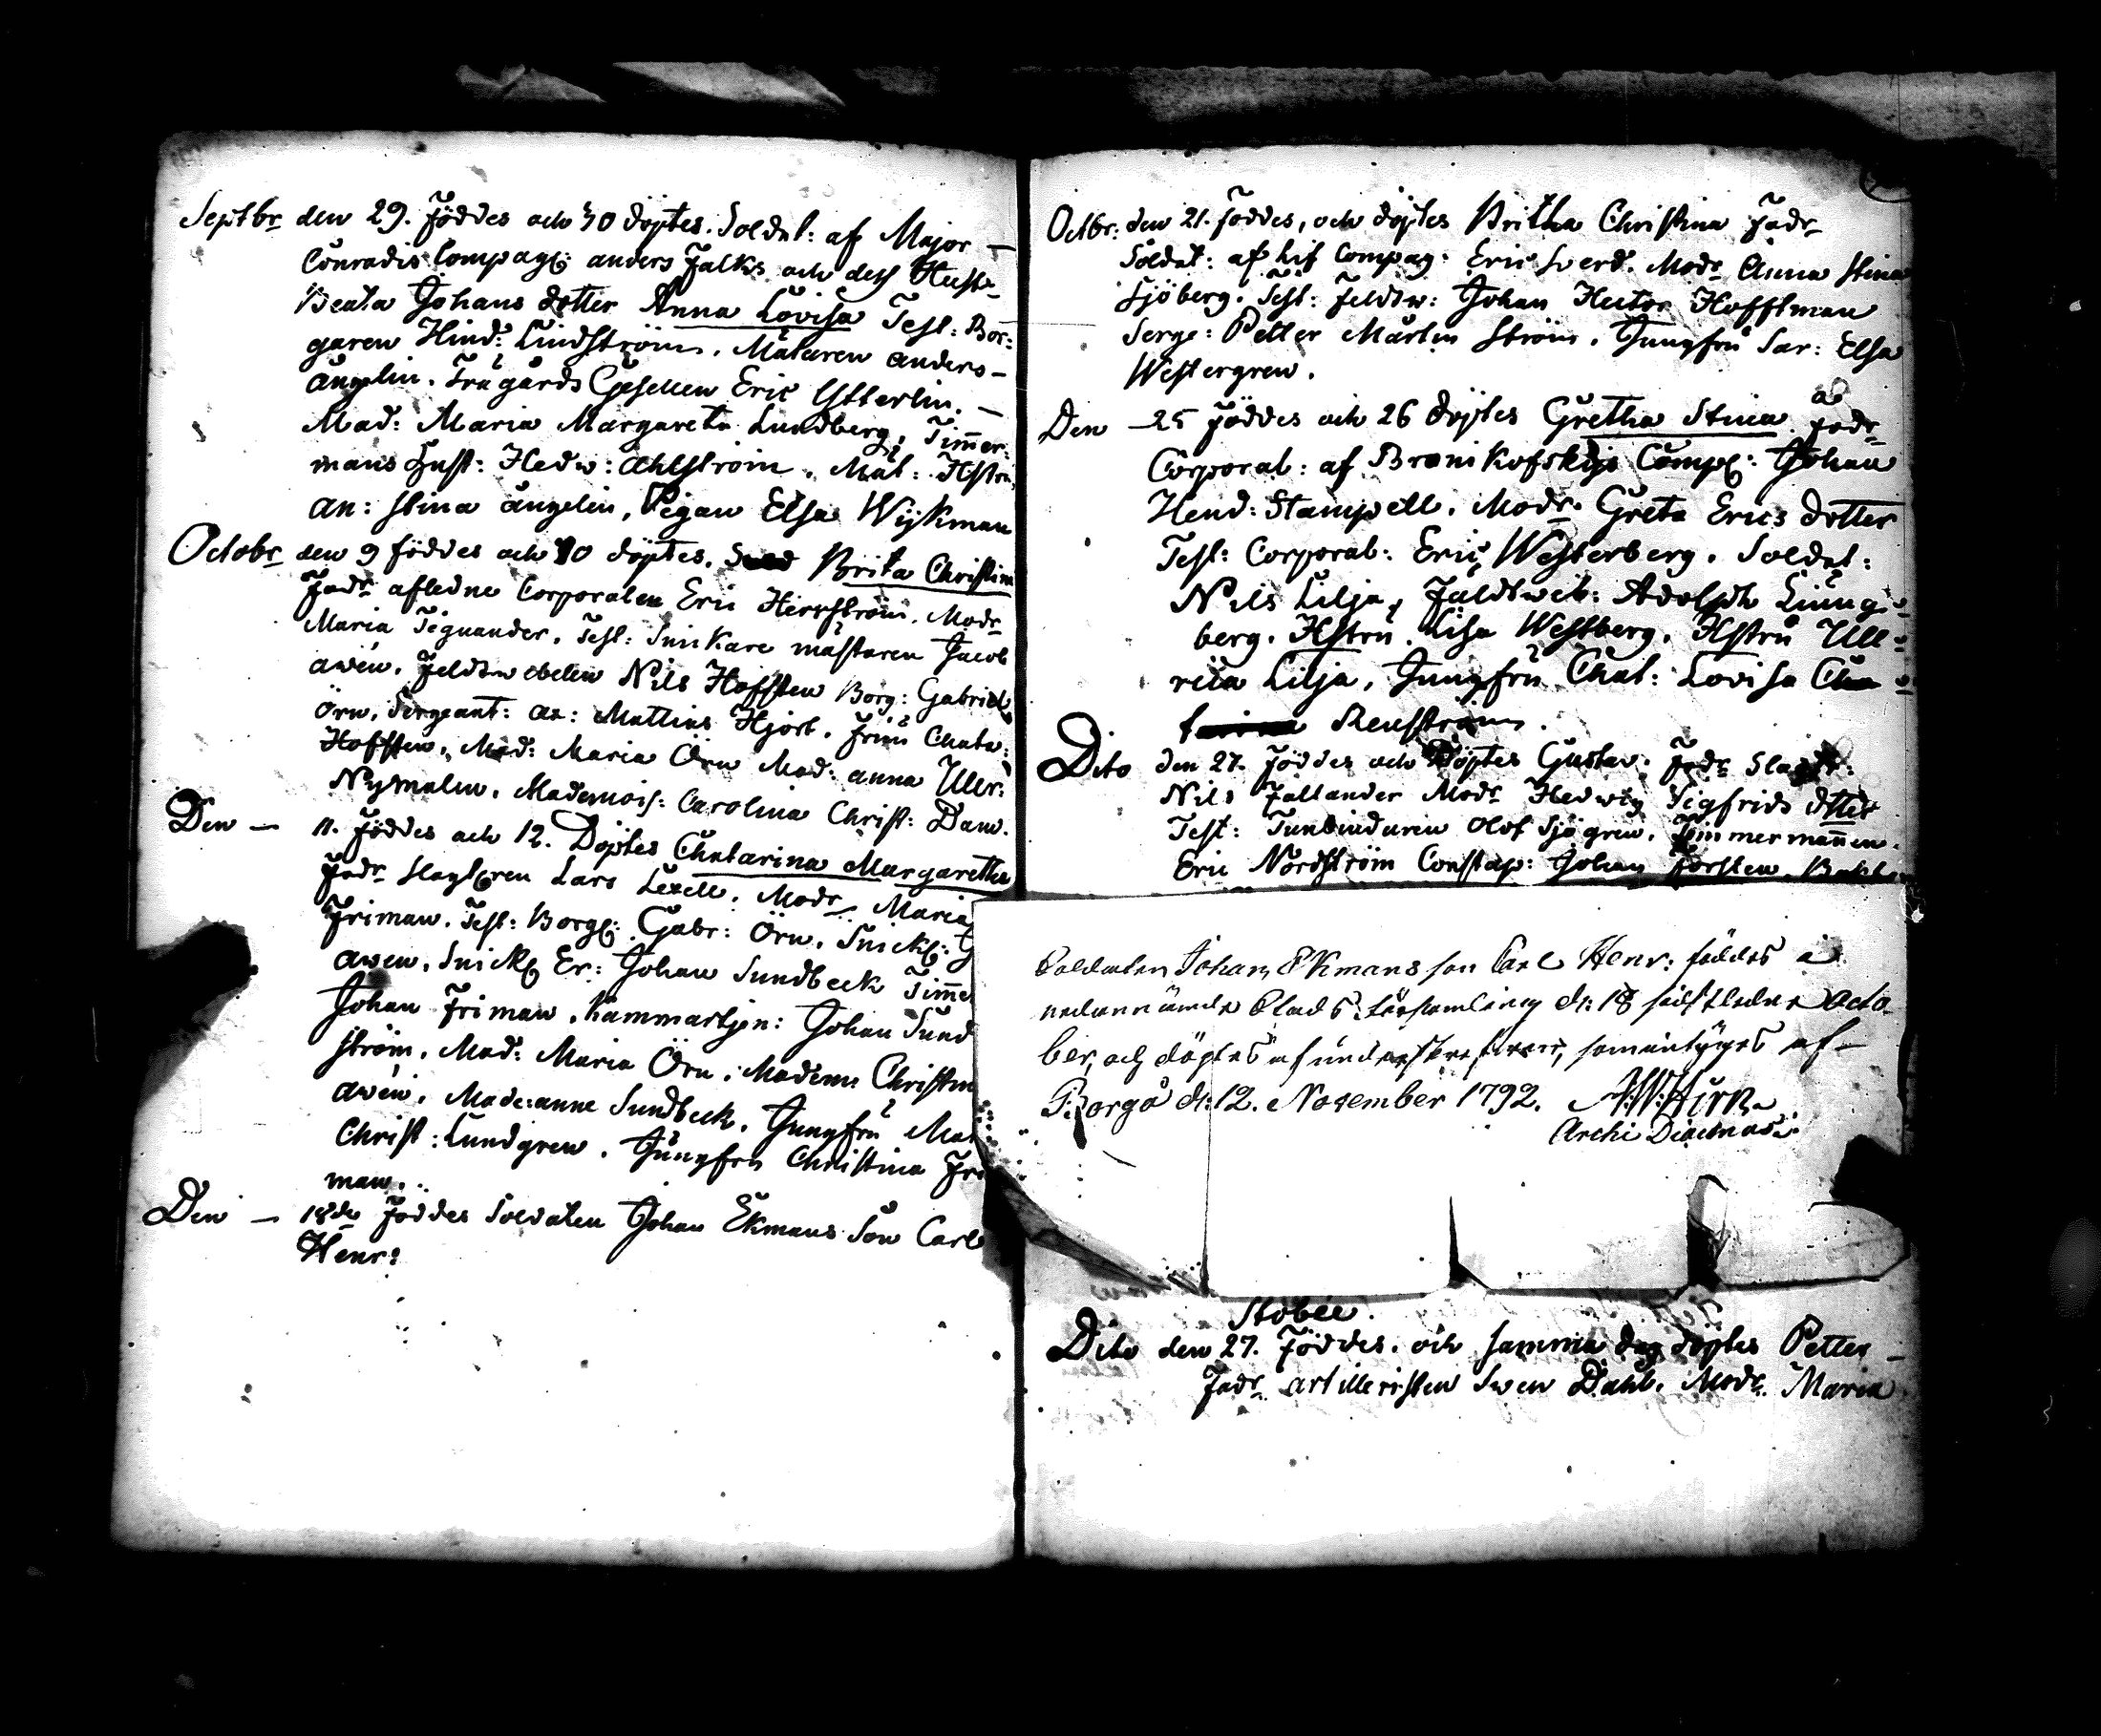 Septbr den 29. Föddes och 30 döptes. Soldat: af Major —
Conradis Compag: anders Falks och dess Hustr
Beata Johans dotter Anna Lovisa Test: Bor:
garen Hind: Lindström. Målaren anders —
Ängelin. Trägårds Gesellen Eric Ytterlin. —
Mad: Maria Margareta Lundberg, Timmer:
mans Hust: Hedw: Ahlström. Mål: Hstru
an: Stina Ängelin, Pigan Elsa Wijkman
Octobr den 9 föddes och 10 döptes. Brita Christina
Fadr afledne Corporalen Eric Herrström. Modr
Maria Tignander. Test: Snikare mästaren Jacob
awén. Feldtwebelen Nils Hoffsten Borg: Gabriel
Örn. Sergeant: Mattias Hjort. Fruu Chata:
Hoffsten, Mad: Maria Örn Mad: anna Ullr:
Nymalm. Mademois: Carolina Christ: Dam.
Den — 11. Föddes och 12. Döptes Chatarina Margaretha
Fadr Slagtren Lars Lexell. Modr Maria
Friman. Test: Borg: Gabr: Örn. Snick:
awen. Snick Er: Johan Sundbeck Timme
Johan Friman. Kammartjen: Johan Sund
ström. Mad: Maria Örn. Madem: Christin
awén. Made: anne Sundbeck. Jungfru Mar
Christ: Lundgren. Jungfru Christina Fri
man.
Den — 18de Föddes Soldaten Johan Ekmans Son Carl
Henr:
Octbr: den 21. Föddes, och döptes Britha Christina Fadr
Soldat: af Lif Compag: Eric Sverd. Modr Anna Stina
Sjöberg. Test: Feldtw: Johan Hector Hofftman
Serge: Petter Martin Ström. Jungfru Sar: Elsa
Westergren.
Den — 25 Föddes och 26 döptes Gretha Stina Fadr
Corporal: af Bronikofskys Comp: Johan
Hend: Stampell. Modr. Greta Erics dotter
Test: Corporal: Eric Westerberg. Soldat:
Nils Lilja, Fäldtweb: Adolph Liung:
berg. Hstru Lisa Westberg. Hstru Ull:
rica Lilja, Jungfru Chat: Lovisa
Renström.
Dito den 27. Föddes och Döptes Gustav. Fadr Slagt:
Nils Fallander Modr Hedwig Sigfrids dtter
Test: Tunbindaren Olof Sjögren. Timmermannen
Eric Nordström Constap: Johan Forsten
Soldaten Johan Ekmans son Carl Henr: föddes i
nedannämde Stads församling d: 18 sidstledne Octo
ber, och döptes af underskrefwen, som intyges af —
Borgå d: 12. November 1792.
Archi Diaconus.
Stobée.
Dito den 27. Föddes. och samma dag döptes Petter —
Fadr artilleristen Swen Dahl. Modr. Maria